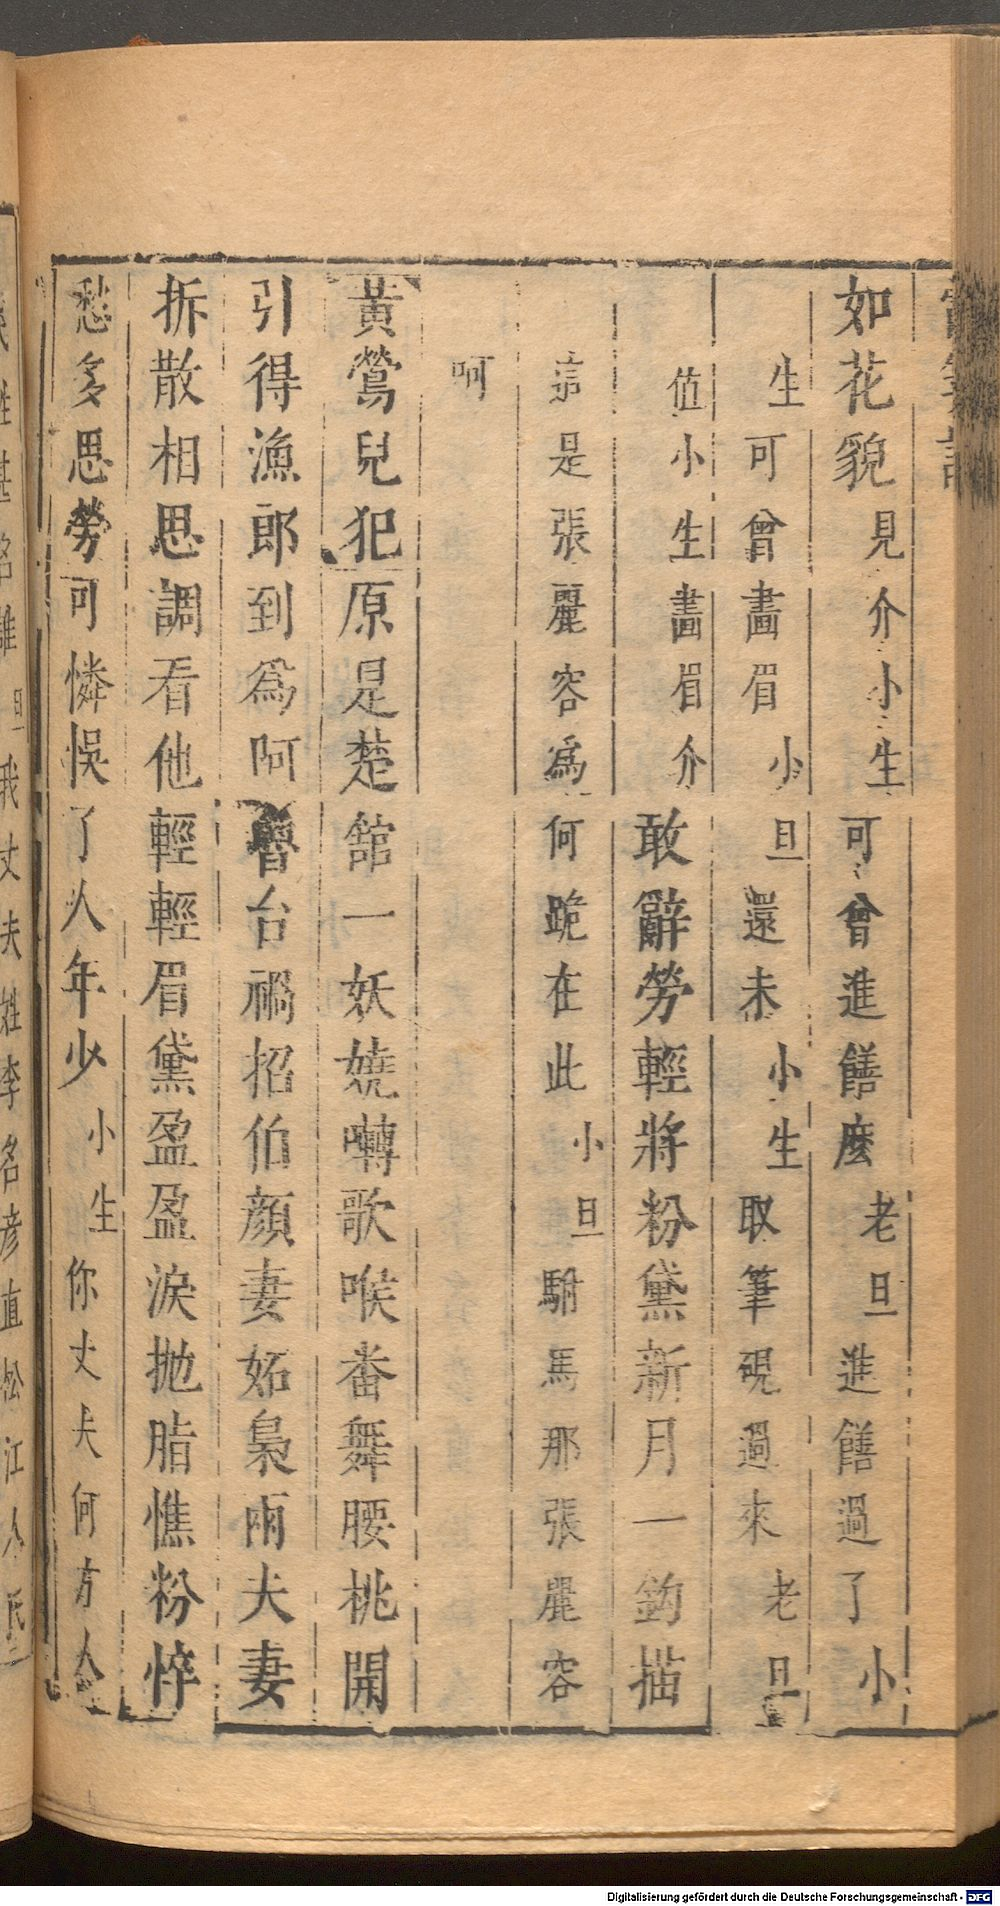 如花貌見介小生可曾進饍麽老旦進饍過了小
生可曾畫眉小旦還未小生取筆硯過來老旦
值小生畫眉介敢辭勞輕將粉黛新月一鈎描
這是張麗容為何跪在此小旦駙馬那張麗容
呵
黃鶯兒犯原是楚舘一妖嬈囀歌喉番舞腰挑開
引得漁郎到為呵台禍招伯顏妻妬梟兩夫妻
拆散相思調看他輕輕眉黛盈盈淚拋脂憔粉悴
愁多思勞可憐悞了人年少小生你丈夫何方人
姓甚名誰旦我丈夫姓李名彥直松江人氏
Digitalisierung gefördert durch die Deutsche Forschungsgemeinschaft - DFG